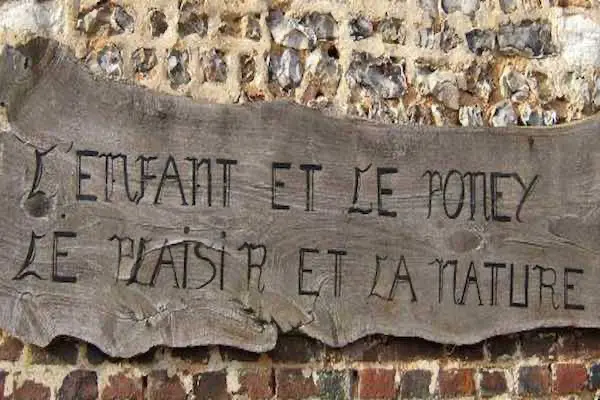 L'ENFANT ET LE PONEY
LE PLAISIR ET LA NATURE